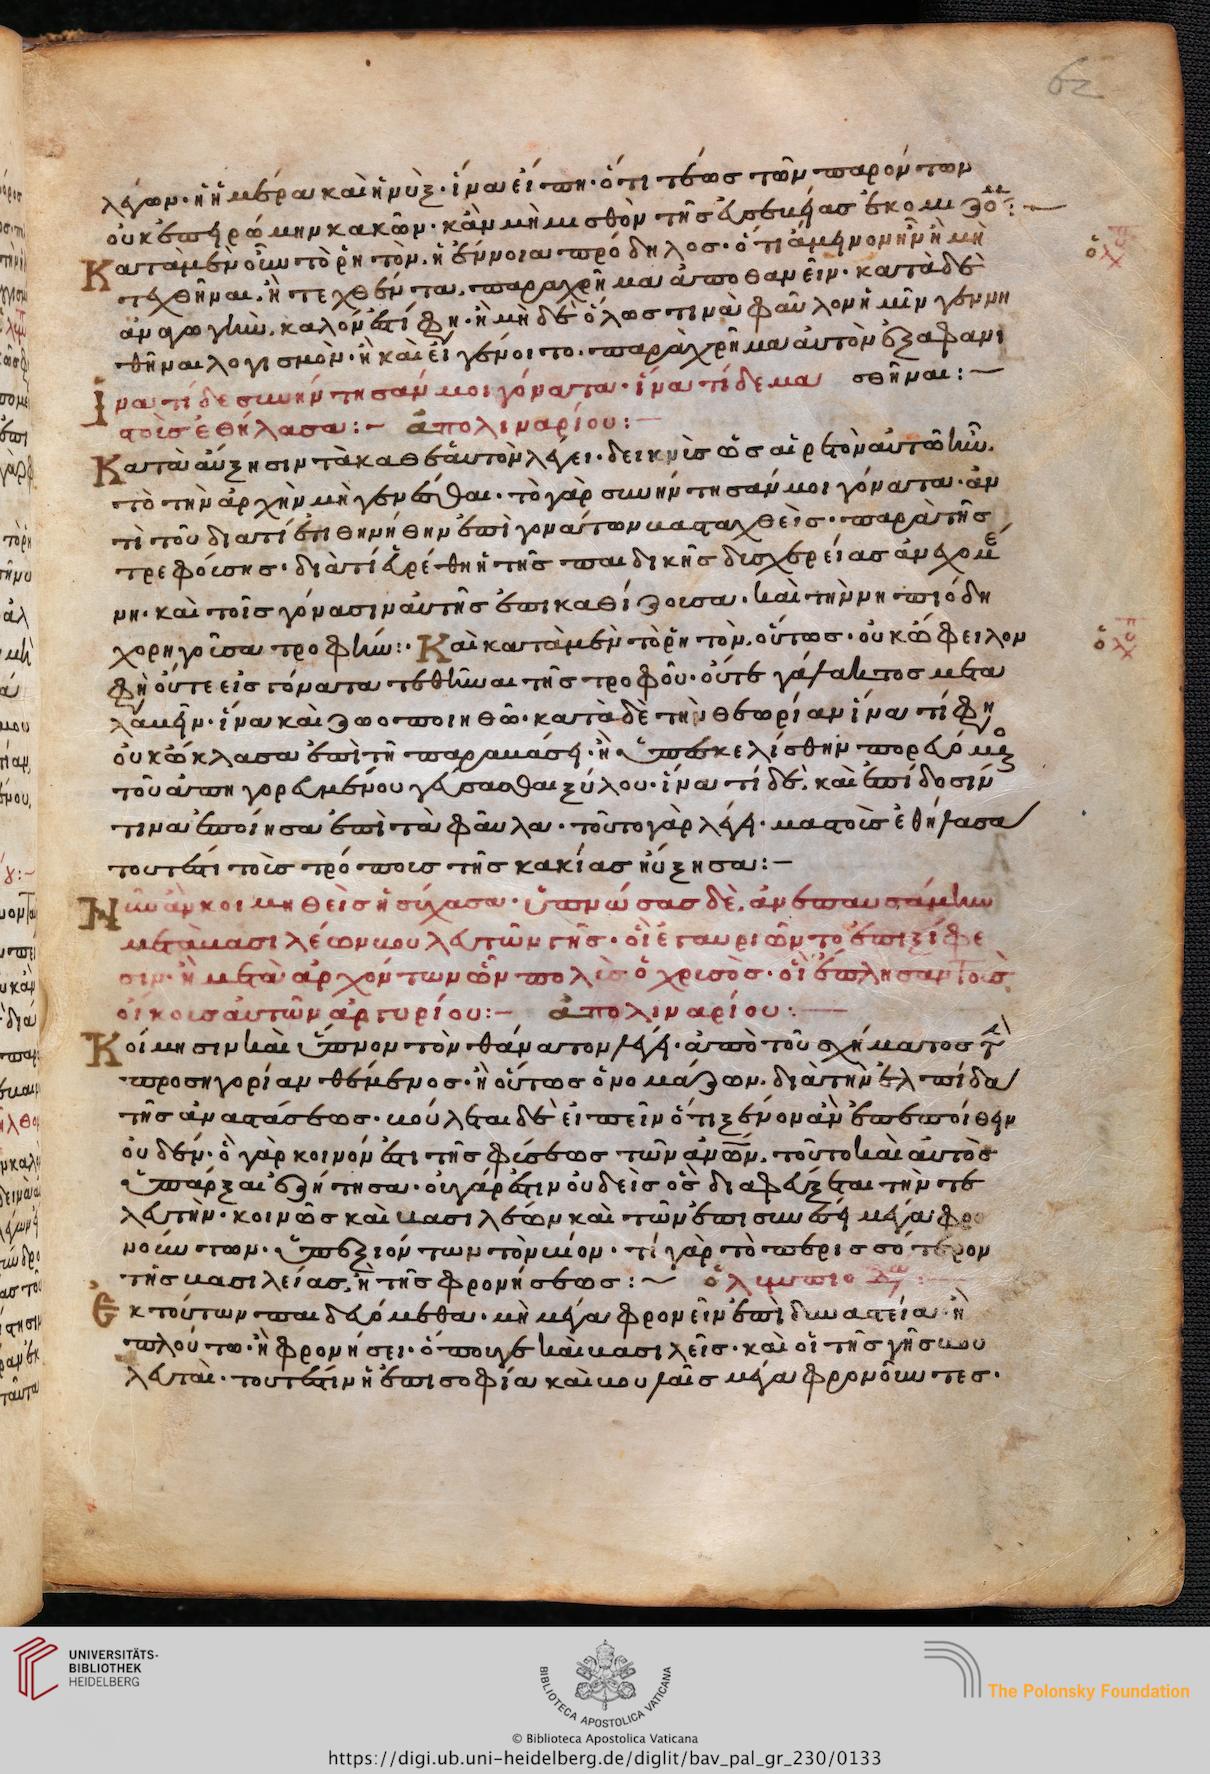 62
λέγων· ἢ ἡμέρα καὶ ἡ νύξ· ἵνα εἴπη· ὅτι τέως τῶν παρόντων
οὐκ ἐπειρώμην κακῶν· κἂν μὴ μισθὸν τῆς εὐσεβείας ἐκομιζό
Κατα μὲν οὖν τὸ ῥητὸν, ἡ ἔννοια πρόδηλος· ὅτι ἄμεινον ἦν ἢ μὴ
τεχθῆναι, ἢ τεχθέντα, παραχρῆμα ἀποθανεῖν· κατὰ δὲ
ἀναγωγὴν, καλόν ἐστί φη· ἢ μὴ δὲ ὅλως τινὰ φαῦλον ἡμῖν γεννη
θῆναι λογισμὸν· ἢ καὶ εἰ γένοιτο, παραχρῆμα αὐτὸν ἐξαφανι
σθῆναι:
Ἵνα τί δε συνήντησάν μοι γόνατα· ἵνα τί δε μα
στοὶς ἐθήλασα: ἀπολιναρίου:
Κατὰ αὔξησιν τὰ καθ ἑαυτὸν λέγει· δεικνὺς ὡς αἱρετὸν αὐτῶ ἦν,
τὸ τὴν ἀρχὴν μὴ γενέσθαι· τὸ γὰρ συνήντησάν μοι γόνατα· ἀν
τὶ τοῦ διατί ἐτιθηνήθην ἐπὶ γονάτων βασταχθεὶς· παρὰ τῆς
τρεφούσης· διατί εὑρέθη ἡ τῆς παιδικῆς δυσχερείας ἀνεχομέ
νη· καὶ τοῖς γόνασιν αὐτῆς ἐπικαθίζουσα· καὶ τὴν νηπιώδη
χορηγοῦσα τροφήν: Καὶ κατὰ μὲν τὸ ῥητὸν, οὕτως· οὐκ ὤφειλον
φη οὔτε εἰς γόνατα τεθῆναι τῆς τροφοῦ· οὔτε γάλακτος μετα
λαβεῖν· ἵνα καὶ ζωοποιηθῶ· κατὰ δὲ τὴν θεωρίαν ἵνα τί φη
οὐκ ὤκλασα ἐπὶ τῆ παραβάσει· ἢ ὑπεσκελίσθην πορευόμενος
τοῦ ἀπηγορευμένου γεύσασθαι ξύλου· ἵνα τί δὲ, καὶ ἐπίδοσίν
τινα ἐποίησα ἐπὶ τὰ φαῦλα· τοῦτο γὰρ λέγει· μαστοὶς ἐθήλασα
τουτέστι τοὶς τρόποις τῆς κακίας ηὔξησα:
Νῦν ἂν κοιμηθεὶς ἡσύχασα· ὑπνώσας δὲ, ἀνεπαυσάμην
μετὰ βασιλέων βουλευτῶν γῆς· οἳ ἐγαυριῶντο ἐπὶ ξίφε
σιν· ἢ μετὰ ἀρχόντων ὧν πολὺς ὁ χρυσὸς· οἳ ἔπλησαν τοὺς
οἴκους αὐτῶν ἀργυρίου: ἀπολιναρίου:
Κοίμησιν καὶ ὕπνον τὸν θάνατον λέγει· ἀπὸ τοῦ σχήματος τὴν
προσηγορίαν θέμενος· ἢ οὕτως ὀνομάζων, διὰ τὴν ἐλπίδα
τῆς ἀναστάσεως· βούλεται δὲ εἰπεῖν ὅτι ξένον ἂν ἐπεποίθειν
οὐδέν· ὃ γὰρ κοινόν ἐστι τῆς φύσεως τῶν ἀνων, τοῦτο καὶ αὐτὸς
ὑπάρξαι ἐζήτησα· οὐ γάρ ἐστιν οὐδεὶς ὃς διαφεύξεται τὴν τε
λευτὴν· κοινῶς καὶ βασιλέων καὶ τῶν ἐπὶ συνέσει μέγα φρο
νούντων· ὑπεξιόντων τὸν βίον· τί γὰρ τὸ περισσότερον
τῆς βασιλείας, ἢ τῆς φρονήσεως: ὀλυμπιοδώρου:
Ἐκ τούτων παιδευόμεθα· μὴ μέγα φρονεῖν ἐπὶ δυναστεία· ἢ
πλούτω· ἢ φρονήσει· ὅπουγε καὶ βασιλεῖς· καὶ οἱ τῆς γῆς βου
λευταὶ· τουτέστιν ἡ ἐπὶ σοφία καὶ βουλαῖς μέγα φρονοῦντες·
UNIVERSITÄTS-
BIBLIOTHEK
HEIDELBERG
BIBLIOTECA APOSTOLICA VATICANA
The Polonsky Foundation
© Biblioteca Apostolica Vaticana
https://digi.ub.uni-heidelberg.de/diglit/bav_pal_gr_230/0133